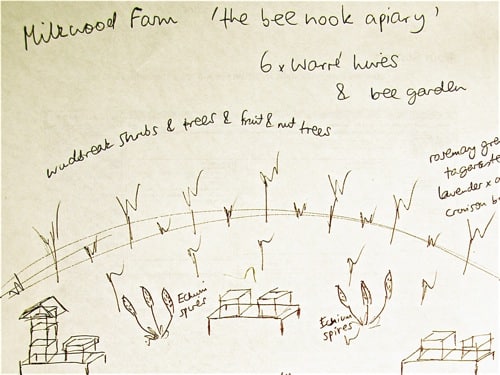 Milkwood Farm 'the bee nook apiary'
6 x warré hives
& bee garden
windbreak shrubs & trees & fruit & nut trees
rosemary gre
lavender x
Echium
spires
Echium
spires